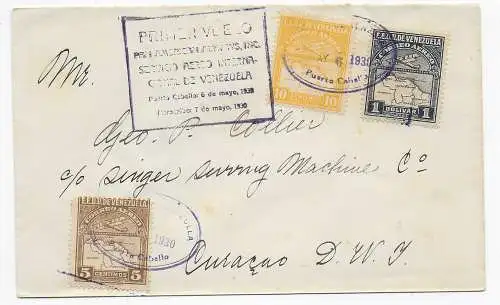 PRIMER VUELO
PAN AMERICAN AIRWAYS, INC.
SERVICIO AEREO INTERNA-
CIONAL DE VENEZUELA
Puerto Cabello: 6 de mayo, 1930
Maracaibo: 7 de mayo, 1930
E.E.U.U. DE VENEZUELA
CORREO AEREO
1 BOLIVAR 1
10 10
1930
Puerto Cabello
Mr.
Geo. P. Collier
c/o Singer Sewing Machine Co
Curaçao D. W. I.
E.E.U.U. DE VENEZUELA
5 CENTIMOS 5
1930
Puerto Cabello